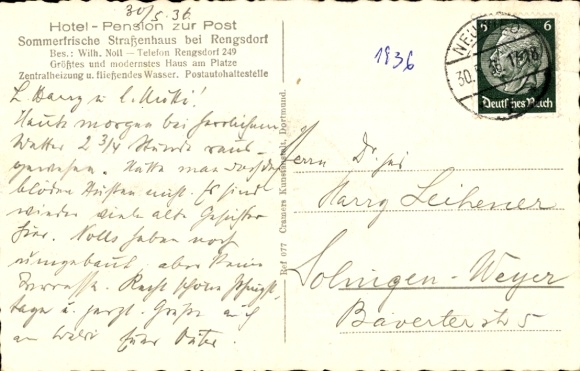 30/5.36
Hotel - Pension zur Post
Sommerfrische Straßenhaus bei Rengsdorf
Bes.: Wilh. Noll — Telefon Rengsdorf 249
Größtes und modernstes Haus am Platze
Zentralheizung u. fließendes Wasser. Postautohaltestelle
L. Harry u. l. Mucki!
Heute morgen bei herrlichem
Wetter 2 3/4 Stunde
gewesen. Hätte man doch
blöden Husten nicht. Es sind
wieder viele alte Gesichter
hier. Nolls haben noch
umgebaut, aber keine
Terrasse. Recht schöne
tage u. herzl. Grüße
Eure
Ref 677 Cramers Kunstanstalt, Dortmund.
1936
5 6
Deutsches Reich
NEU
30. 36. 17-18
Herrn Dr. jur
Harry Leihener
Solingen-Weyer
Baverterstr 5